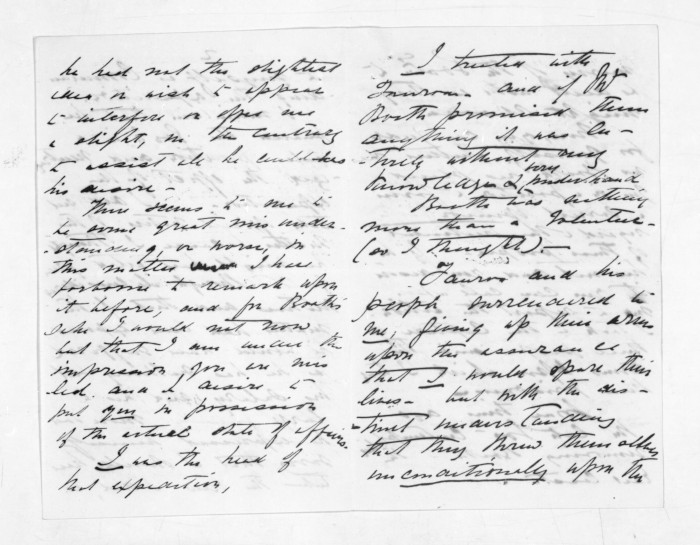 he had not the slightest
idea or wish to appear
to interfere or offer me
a slight, on the contrary
to assist all he could was
his desire -
There seems to me to
be some great misunder-
-standing, or worse, in
this matter I have
forborne to remark upon
it before, and for Booth's
sake I would not now
but that I am under the
impression, you are mis
led and I desire to
put you in possession
of the actual state of affairs -
I was the head of
that expedition,
I treated with
Tauroa and if Mr
Booth promised them
anything it was en -
- tirely without my
knowledge & very underhand
Booth was nothing
more than a Volunteer
(so I thought) -
Tauroa and his
people surrendered to
me, giving up their arms
upon the assurance
that I would spare their
lives - but with the dis -
- tinct understanding
that they threw themselves
unconditionally upon the